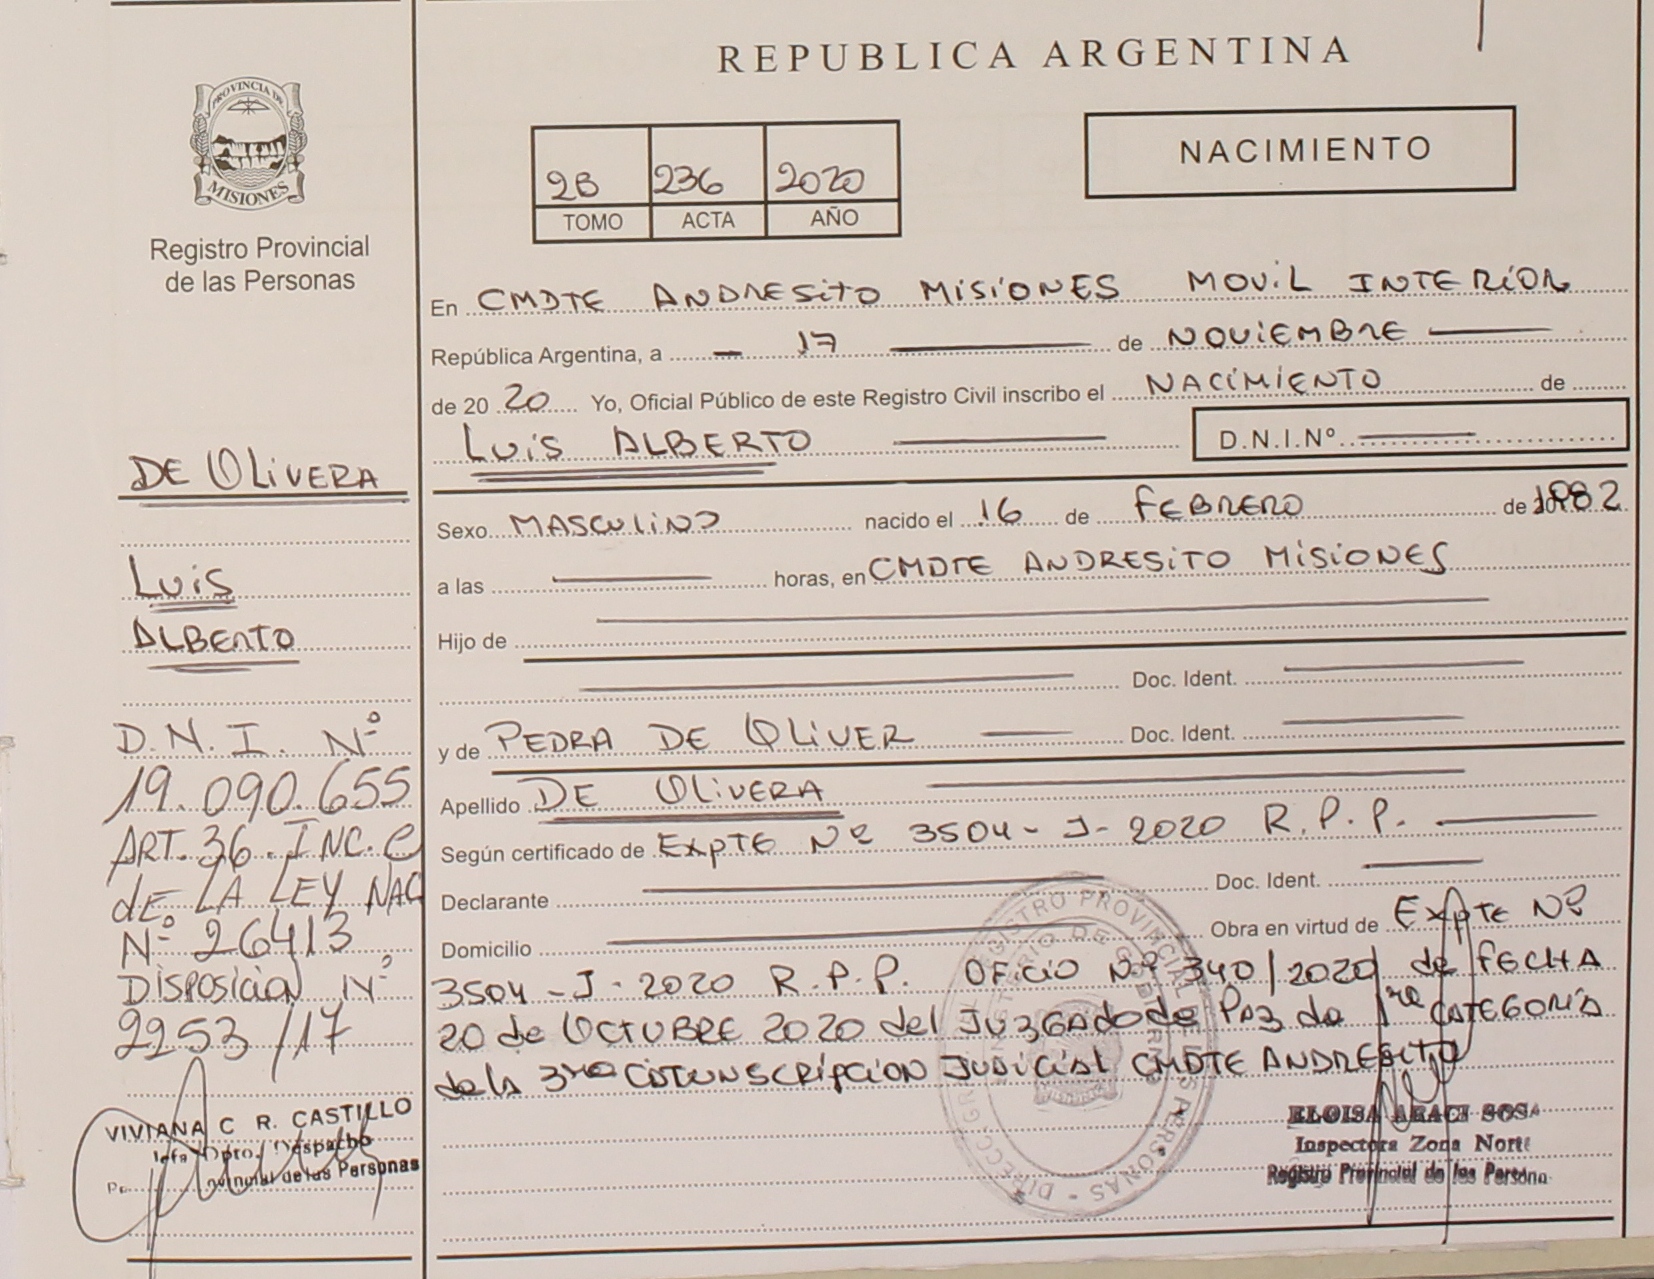 REPUBLICA ARGENTINA
PROVINCIA DE
MISIONES
Registro Provincial
de las Personas
2B 236 2020
TOMO ACTA AÑO
NACIMIENTO
En CMDTE ANDRESITO MISIONES MOVIL INTERIOR
República Argentina, a 17 de NOVIEMBRE
de 20 20 Yo, Oficial Público de este Registro Civil inscribo el NACIMIENTO de
LUIS ALBERTO D.N.I.Nº
Sexo MASCULINO nacido el 16 de FEBRERO de 1982
a las horas, en CMDTE ANDRESITO MISIONES
Hijo de
Doc. Ident.
y de PEDRA DE OLIVER Doc. Ident.
Apellido DE OLIVERA
Según certificado de EXPTE Nº 3504-J-2020 R.P.P.
Declarante Doc. Ident.
Domicilio Obra en virtud de EXPTE Nº
3504-J-2020 R.P.P. OFICIO Nº 340/2020 de FECHA
20 de OCTUBRE 2020 del JUZGADO de PAZ de 1ra CATEGORIA
de la 3ra JUDICIAL CMDTE ANDRESITO
DE OLIVERA
LUIS
ALBERTO
D.N.I. Nº
19.090.655
ART.36.INC.C
dE LA LEY NAC
Nº 26413
DISPOSICIAN Nº
2253/17
VIVIANA C R. CASTILLO
Jefa Dpto. Despacho
Provincial de las Personas
ELOISA ARACI SOSA
Inspectora Zona Norte
Registro Provincial de las Persona
REGISTRO PROVINCIAL DE LAS PERSONAS
MINISTERIO DE GOBIERNO